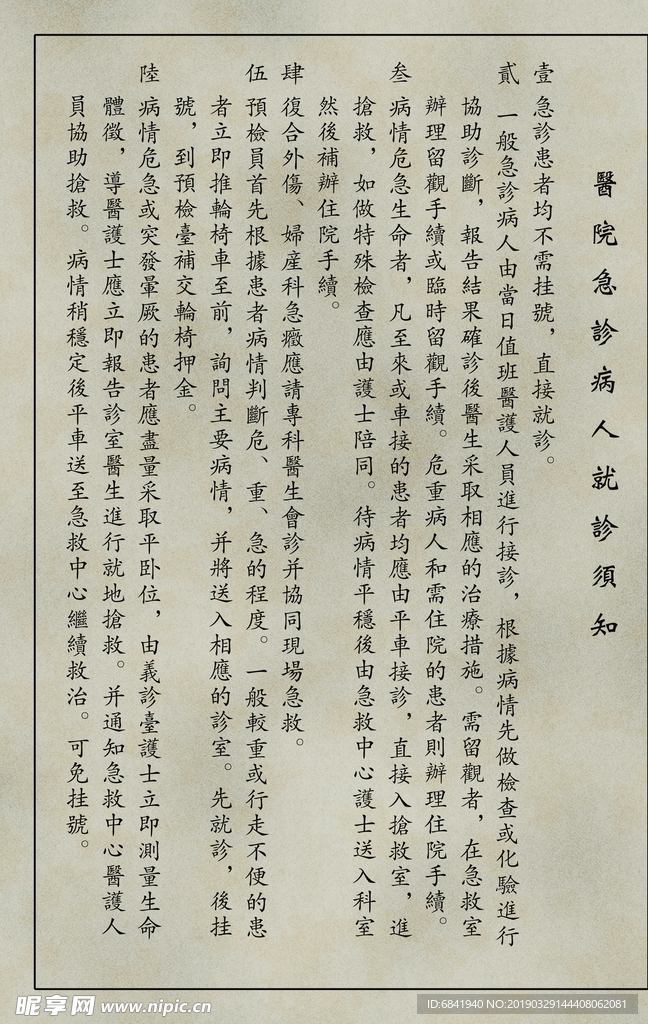 醫院急診病人就診須知
壹 急診患者均不需挂號，直接就診。
貳 一般急診病人由當日值班醫護人員進行接診，根據病情先做檢查或化驗進行
協助診斷，報告結果確診後醫生采取相應的治療措施。需留觀者，在急救室
辦理留觀手續或臨時留觀手續。危重病人和需住院的患者則辦理住院手續。
叁 病情危急生命者，凡至來或車接的患者均應由平車接診，直接入搶救室，進
搶救，如做特殊檢查應由護士陪同。待病情平穩後由急救中心護士送入科室
然後補辦住院手續。
肆 復合外傷、婦産科急癥應請專科醫生會診并協同現場急救。
伍 預檢員首先根據患者病情判斷危、重、急的程度。一般較重或行走不便的患
者立即推輪椅車至前，詢問主要病情，并將送入相應的診室。先就診，後挂
號，到預檢臺補交輪椅押金。
陸 病情危急或突發暈厥的患者應盡量采取平卧位，由義診臺護士立即測量生命
體徵，導醫護士應立即報告診室醫生進行就地搶救。并通知急救中心醫護人
員協助搶救。病情稍穩定後平車送至急救中心繼續救治。可免挂號。
昵享网 www.nipic.cn
ID:6841940 NO:20190329144408062081